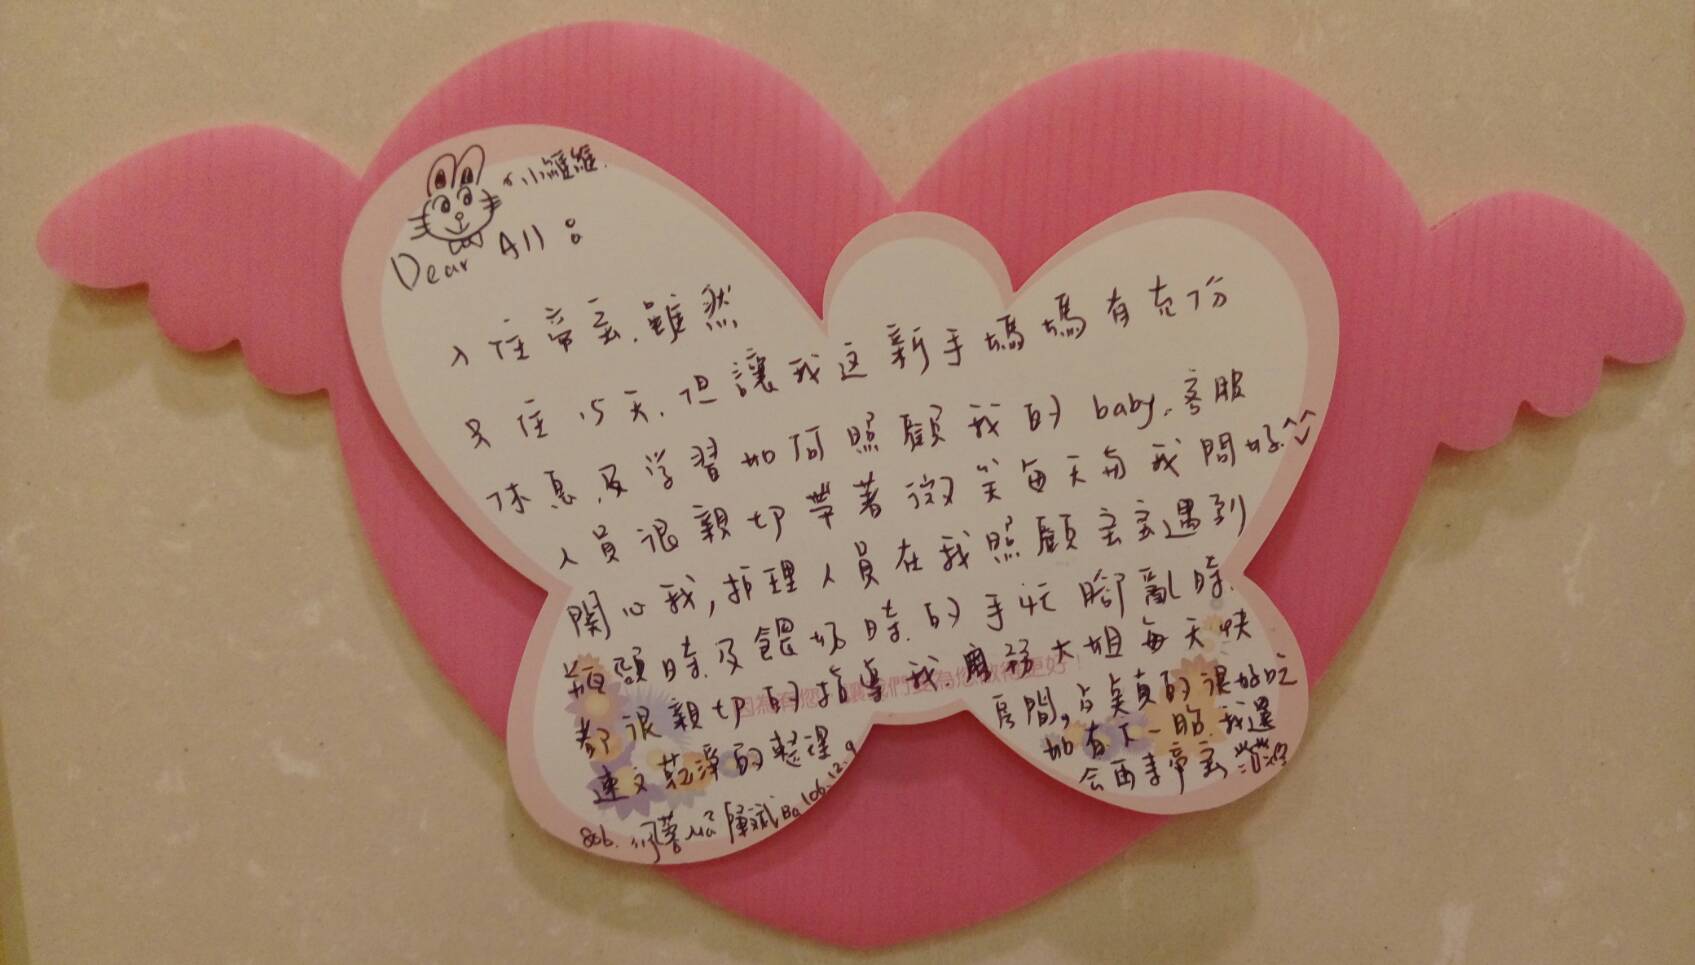 小
Dear All：
入住帝宝.雖然
只住15天.但讓我这新手媽媽有充份
休息.及学習如何照顧我的baby.客服
人員很親切帶著微笑每天与我問好.^^
関心我,护理人員在我照顧宝宝遇到
瓶頸時.及餵奶時.的手忙腳亂時.
都很親切的指導我.房務大姐每天快
速又乾淨的整理
房間,点桌真的很好吃
如有下一胎.我還
会再来帝宝
因為有您 讓我們 為您做得更好！
806. Ma 陳 Ba 106.12.9